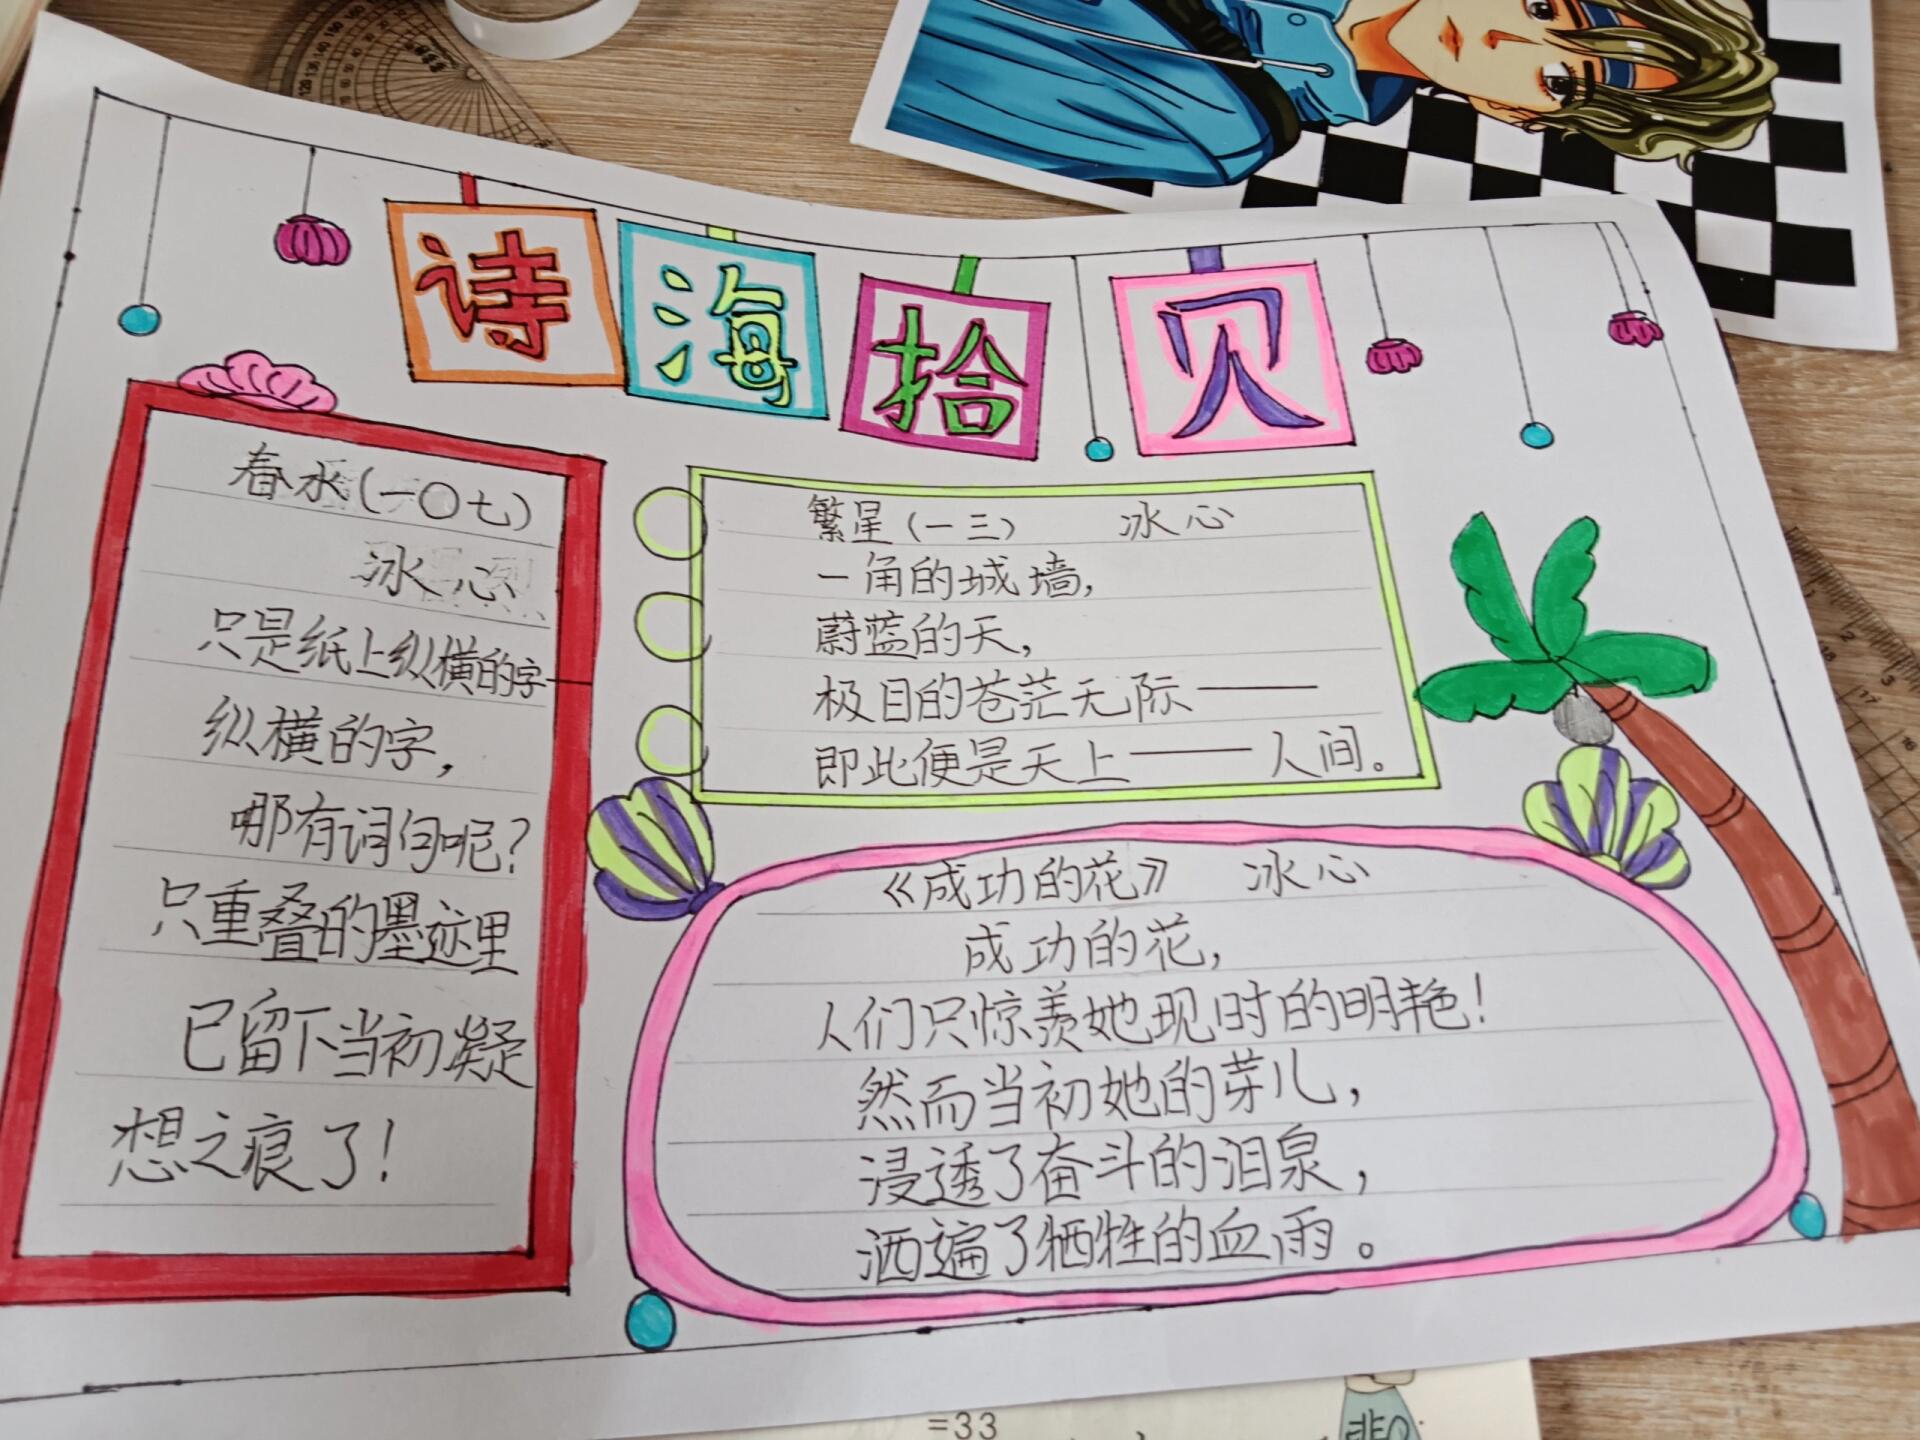 诗海拾贝
春水(一〇七)
冰心
只是纸上纵横的字—
纵横的字,
哪有词句呢?
只重叠的墨迹里
已留下当初凝
想之痕了!
繁星(一三) 冰心
一角的城墙,
蔚蓝的天,
极目的苍茫无际——
即此便是天上——人间。
《成功的花》 冰心
成功的花,
人们只惊羡她现时的明艳!
然而当初她的芽儿,
浸透了奋斗的泪泉,
洒遍了牺牲的血雨。
=33